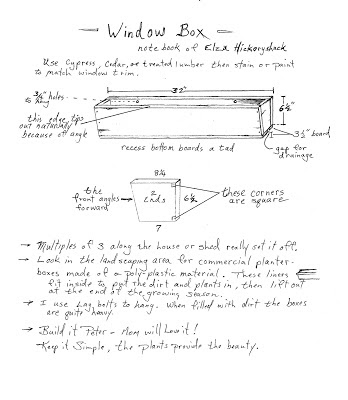 — Window Box —
note book of Elza Hickoryshack
Use Cypress, Cedar, or treated lumber then stain or paint
to match window trim.
32"
3/8" holes
to hang
6½"
this edge tips
out naturally
because of angle
3½" board
gap for
drainage
recess bottom boards a tad
8¼
the
front angles
forward
2
Ends
6½
these corners
are square
7
→ Multiples of 3 along the house or shed really set it off.
→ Look in the landscaping area for commercial planter-
boxes made of a poly-plastic material. These liners
fit inside to put the dirt and plants in, then lift out
at the end of the growing season.
→ I use Lag bolts to hang. When filled with dirt the boxes
are quite heavy.
→ Build it Peter – Mom will Love it!
Keep it Simple, the plants provide the beauty.